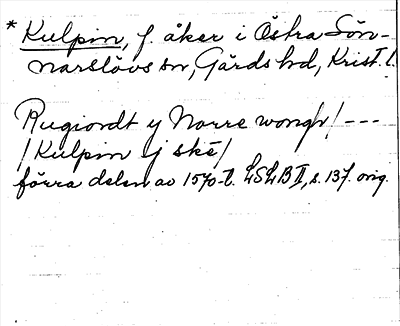 * Kulpin, f. åker i Östra Sön-
narslövs sn, Gärds hd, Krist. l.
Rugiordt y Norre wongh / ---
/ Kulpin ij ske /
förra delen av 1570-t. LSLB II, s. 137. orig.